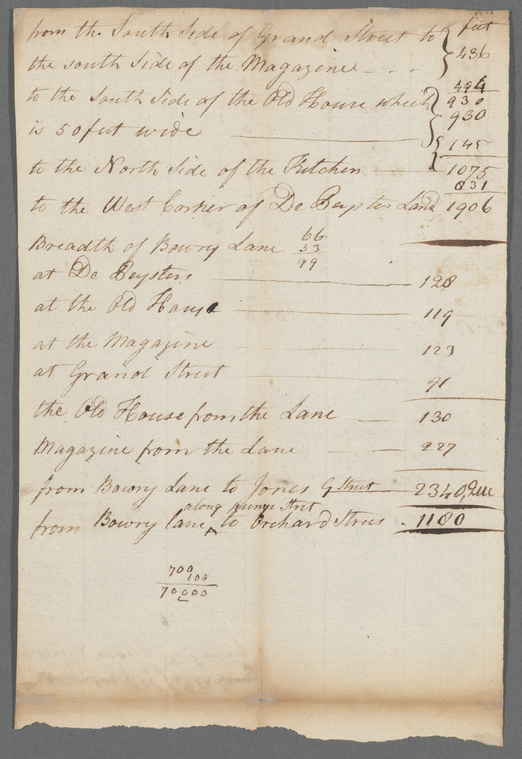 feet
from the South Side of Grand Street to
the south Side of the Magazine - - - 436
494
to the South Side of the Old House which 930
930
is 50 feet wide 145
to the North Side of the Kitchen 1075
831
to the West Corner of De Beysters Land 1906
66
Breadth of Bowry Lane 33
99
at De Beysters 128
at the Old House 119
at the Magazine 123
at Grand Street 91
the Old House from the Lane 130
Magazine from the Lane 227
from Bowry Lane to Jones Street 2340,
along Street
from Bowry Lane ^ to Orchard Street 1180
700
100
70000